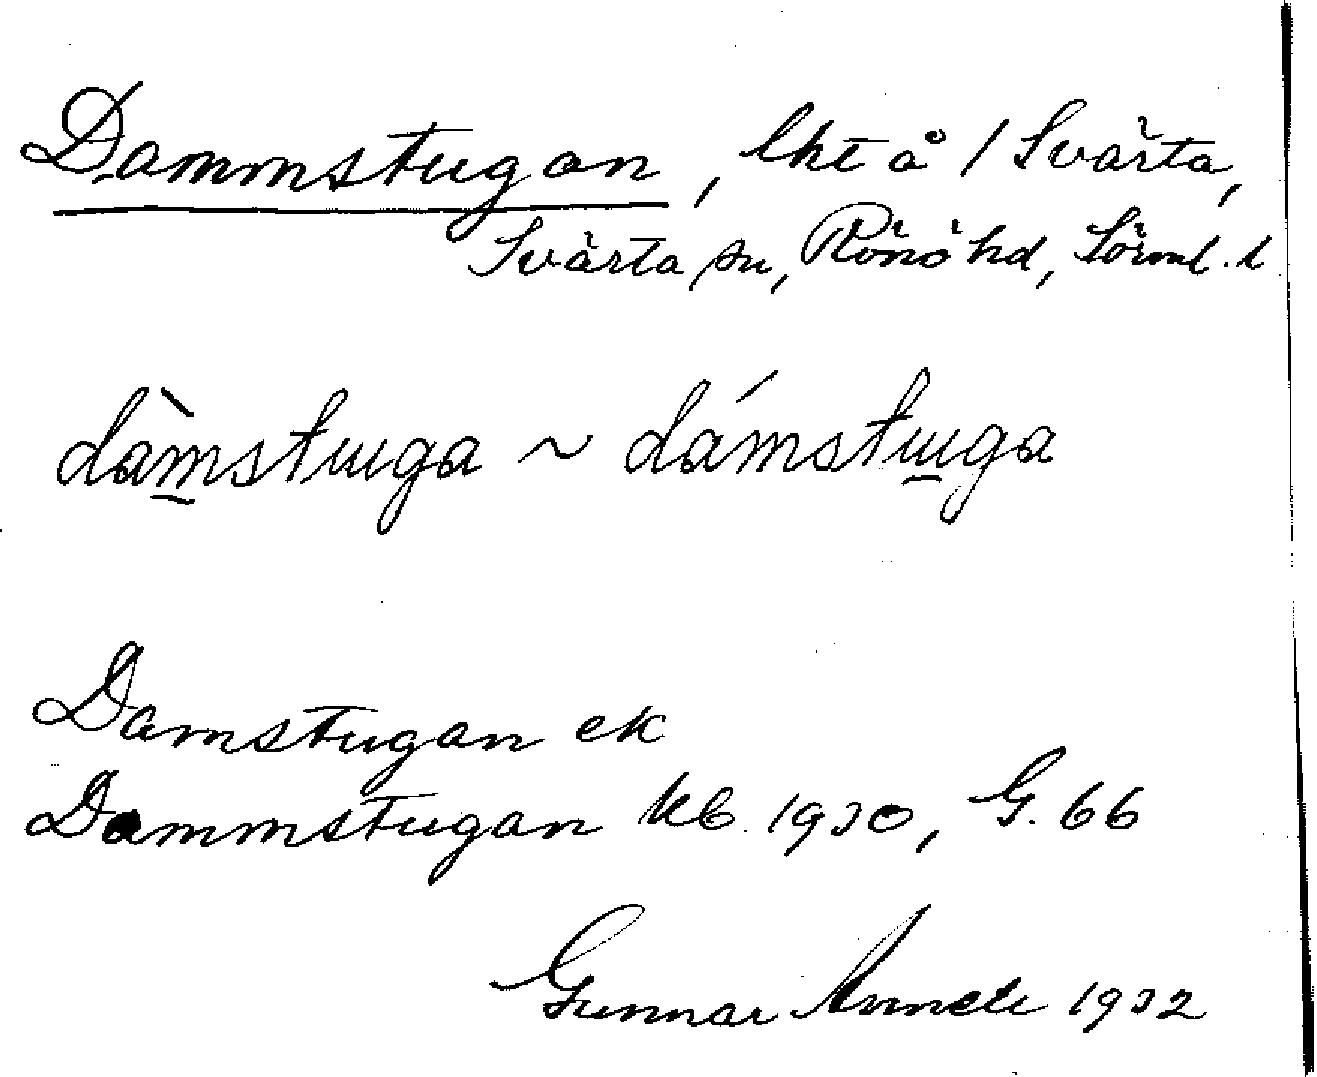 Dammstugan, lht å 1 Svärta,
Svärta sn, Rönö hd, Sörml. l.
dàmstuga ~ dámstuga
Damstugan ek
Dammstugan kb. 1930, G. 66
Gunnar 1932